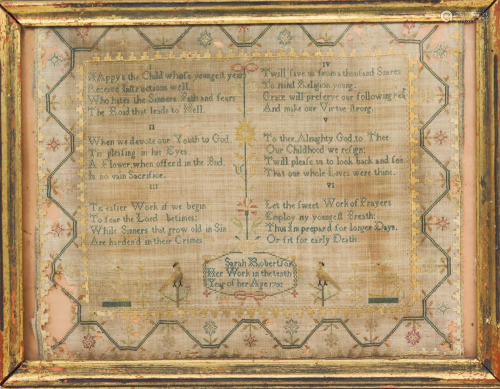 I
Happy's the Child whose youngest years
Receives Instructions well.
Who hates the Sinners Path and fears
The Road that leads to Hell.
II
When we devote our Youth to God
Tis pleasing in his Eyes
A Flower, when offer'd in the Bud
Is no vain Sacrifice.
III
Tis easier Work if we begin
To fear the Lord betimes;
While Sinners that grow old in Sin
Are harden'd in their Crimes
IV
Twill save us from a thousand Snares
To mind Religion young:
Grace will preserve our following
And make our Virtue strong.
V
To thee, Almighty God, to Thee
Our Childhood we resign;
Twill please us to look back and see
That our whole Lives were thine.
VI
Let the Sweet Work of Prayers
Employ my youngest Breath:
Thus I'm prepar'd for longer Days,
Or fit for early Death
Sarah Robertson
Her Work in the tenth
Year of her Age